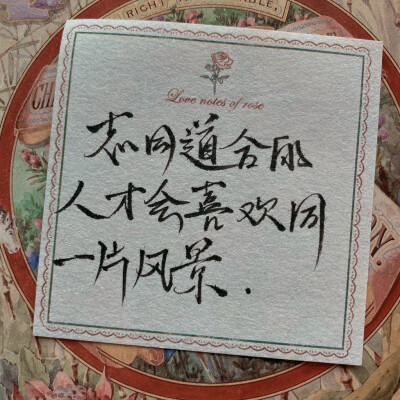 RIGHT
ABLE,
Love notes of rose
志同道合的
人才会喜欢同
一片风景.